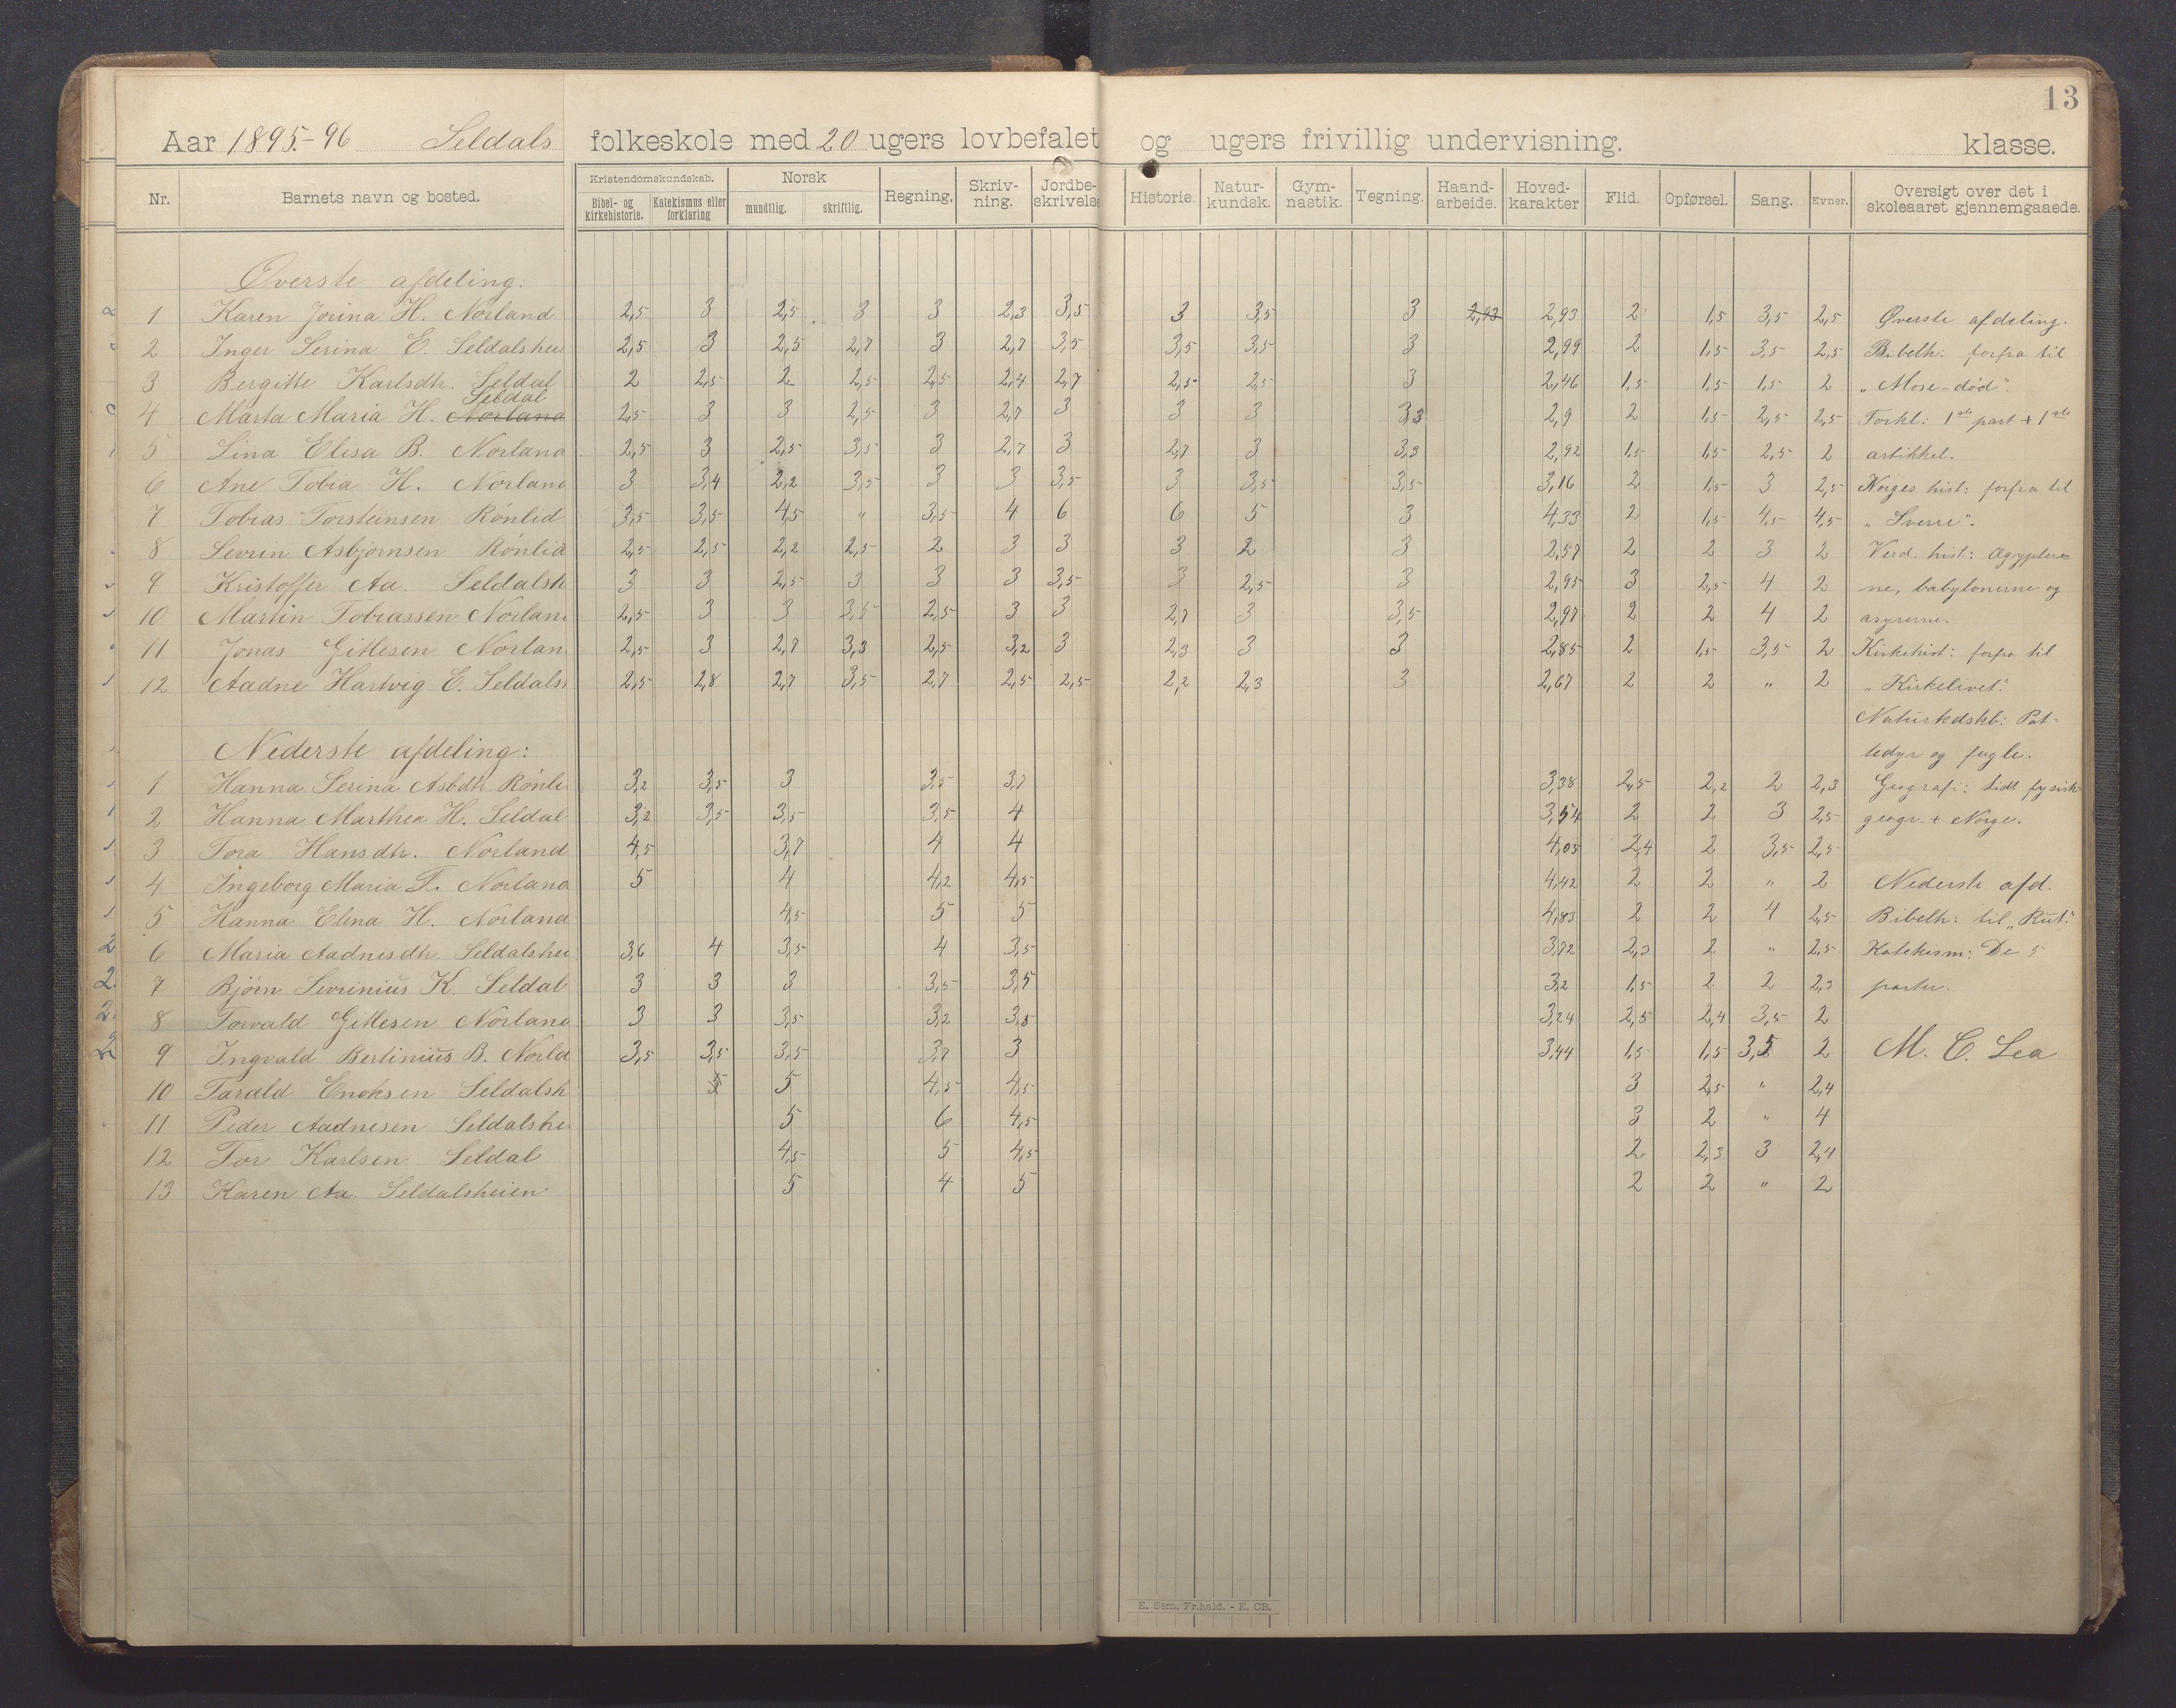 13
Aar 1895.-96 Seldals folkeskole med 20 ugers lovbefalet og ugers frivillig undervisning. klasse.
Nr. Barnets navn og bosted. Kristendomskundskab. Bibel- og kirkehistorie. Katekismus eller forklaring Norsk mundtlig. skriftlig. Regning. Skriv- ning. Jordbe- skrivelse Historie. Natur- kundsk. Gym- nastik. Tegning. Haand- arbeide. Hoved- karakter Flid. Opførsel. Sang. Evner. Oversigt over det i skoleaaret gjennemgaaede.
Øverste afdeling:
1 Karen Jorina H. Norland 2,5 3 2,5 3 3 2,3 3,5 3 3,5 3 2,93 2,93 2 1,5 3,5 2,5 Øverste afdeling.
2 Inger Serina E. Seldalshei 2,5 3 2,5 2,7 3 2,7 3,5 3,5 3,5 3 2,99 2 1,5 3,5 2,5 Bibelh. forfra til
3 Bergitte Karlsdtr. Seldal 2 2,5 2 2,5 2,5 2,4 2,7 2,5 2,5 3 2,46 1,5 1,5 1,5 2 "Mose-død".
Seldal
4 Marta Maria H. Norland 2,5 3 3 2,5 3 2,7 3 3 3 3,3 2,9 2 1,5 2,5 2,5 Forkl: 1ste part + 1ste
5 Lina Elisa B. Norland 2,5 3 2,5 3,5 3 2,7 3 2,7 3 3,3 2,92 1,5 1,5 2,5 2 artikkel.
6 Ane Tobia H. Norland 3 3,4 2,2 3,5 3 3 3,5 3 3,5 3,5 3,16 2 1,5 3 2,5 Norges hist: forfra til
7 Tobias Torsteinsen Rønlid 3,5 3,5 4,5 " 3,5 4 6 6 5 3 4,33 2 1,5 4,5 4,5 "Sverre".
8 Sevrin Asbjørnsen Rønlid 2,5 2,5 2,2 2,5 2 3 3 3 2 3 2,57 2 2 3 2 Verd. hist: Ægypter-
9 Kristoffer Aa. Seldalsh 3 3 2,5 3 3 3 3,5 3 2,5 3 2,95 3 2,5 4 2 ne, babylonerne og
10 Martin Tobiassen Norlan 2,5 3 3 3,5 2,5 3 3 2,7 3 3,5 2,97 2 2 4 2 asyrerne.
11 Jonas Gitlesen Norlan 2,5 3 2,7 3,3 2,5 3,2 3 2,3 3 3 2,85 2 1,5 3,5 2 Kirkehist: forfra til
12 Aadne Hartvig E. Seldals 2,5 2,8 2,7 3,5 2,7 2,5 2,5 2,2 2,3 3 2,67 2 2 " 2 "Kirkelivet".
Naturkdskb: Pat-
Nederste afdeling: tedyr og fugle.
1 Hanna Serina Asbdtr. Rønli 3,2 3,5 3 3,5 3,7 3,38 2,5 2,2 2 2,3 Geografi: Lidt fysisk
2 Hanna Marthea H. Seldal 3,2 3,5 3,5 3,5 4 3,54 2 2 3 2,5 geogr. + Norge.
3 Tora Hansdtr. Norland 4,5 3,7 4 4 4,05 2,4 2 3,5 2,5
4 Ingeborg Maria T. Norland 5 4 4,2 4,5 4,42 2 2 " 2 Nederste afd.
5 Hanna Elena H. Norland 4,5 5 5 4,83 2 2 4 2,5 Bibelh: til "Rut".
2 6 Maria Aadnesdtr. Seldalshei 3,6 4 3,5 4 3,5 3,72 2,3 2 " 2,5 Katekism: De 5
2 7 Bjørn Sevrinius K. Seldal 3 3 3 3,5 3,5 3,2 1,5 2 2 2,3 parter.
2 8 Torvald Gitlesen Norland 3 3 3,5 3,2 3,5 3,24 2,5 2,4 3,5 2
2 9 Ingvald Bertinius B. Norla 3,5 3,5 3,5 3,7 3 3,44 1,5 1,5 3,5 2 M. C. Lea
10 Tarald Enoksen Seldalsh 5 5 4,5 4,5 3 2,5 " 2,4
11 Peder Aadnesen Seldalshe 5 6 4,5 3 2 " 4
12 Tor Karlsen Seldal 4,5 5 4,5 2 2,3 3 2,4
13 Karen Aa. Seldalsheien 5 4 5 2 2 " 2
E. Sem, Fr.hald. - E. CB.